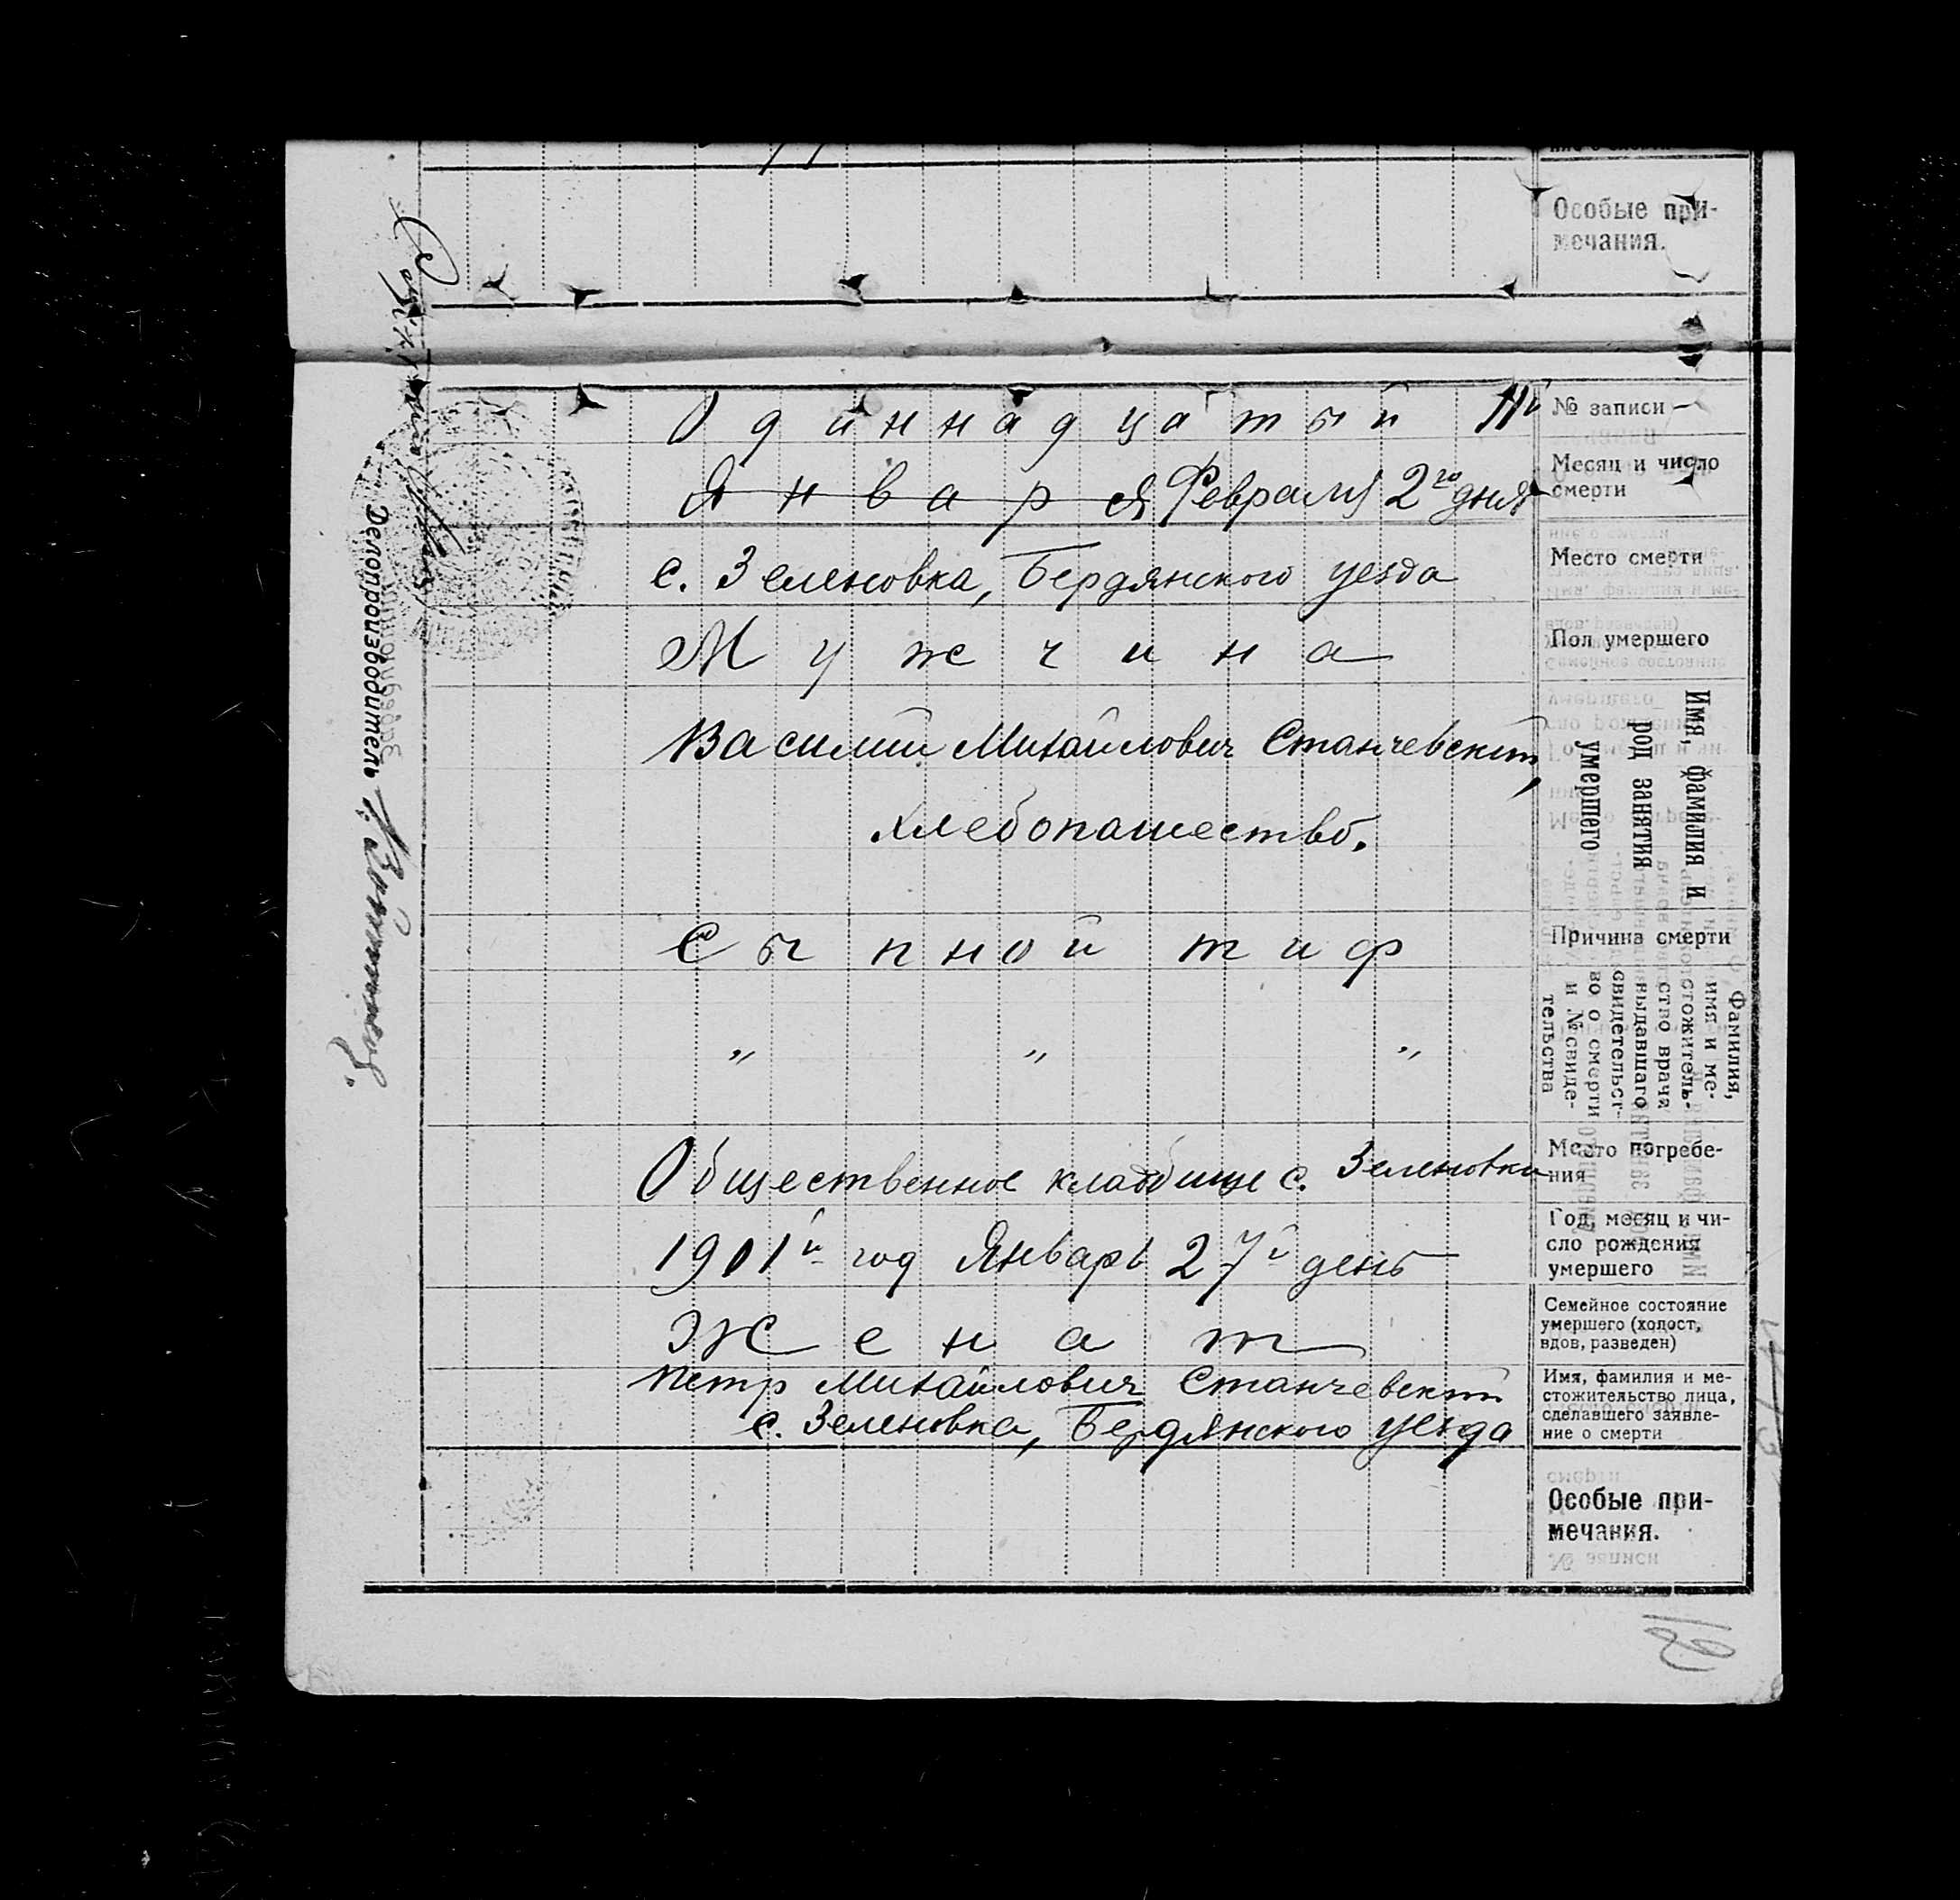 Особые при-
мечания.
Одиннадцатый 11й
№ записи
Января Февраля 2го дня
Месяц и число
смерти
с. Зеленовка, Бердянского уезда
Место смерти
Мужчина
Пол умершего
Василий Михайлович Станчевский,
хлебопашество.
Имя, фамилия и
род занятия
умершего
Сыпной тиф
Причина смерти
„ „ „
Фамилия,
имя и ме-
стожитель-
ство врача
выдавшаго
свидетельст-
во о смерти
и № свиде-
тельства
Общественное кладбище с. Зеленовки
Место погребе-
ния
1901й год Январь 27й день
Год, месяц и чи-
сло рождения
умершего
Женат
Семейное состояние
умершего (холост,
вдов, разведен)
Петр Михайлович Станчевский
с. Зеленовка, Бердянского уезда
Имя, фамилия и ме-
стожительство лица,
сделавшего заявле-
ние о смерти
Особые при-
мечания.
Делопроизводитель